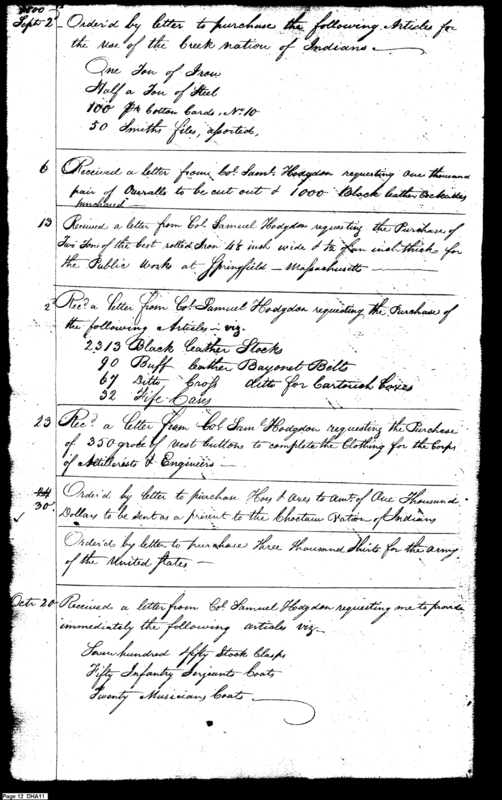 1800
Sept 2 Order'd by letter to purchase the following Articles for
the use of the Creek nation of Indians.
One Ton of Iron
Half a Ton of Steel
100 pr Cotton Cards, No. 10
50 Smiths files, assorted,
6 Received a letter from Col. Saml. Hodgdon requesting One thousand
pair of Overalls to be cut out & 1000 Black leather Cockades
purchased
13 Received a letter from Col Samuel Hodgdon requesting the Purchase of
Two Tons of the best rolled Iron 4½ inch wide & ½ of an inch thick for
the Public Works at Springfield — Massachusetts
2 Recd. a letter from Col. Samuel Hodgdon requesting the Purchase of
the following Articles — viz
2313 Black leather Stocks
90 Buff leather Bayonet Belts
67 Ditto Cross ditto for Cartouch Boxes
32 Fife Cases
23 Recd. a letter from Col Saml Hodgdon requesting the Purchase
of 350 groce of vest buttons to complete the Clothing for the Corps
of Artillerists & Engineers —
24
30 Order'd by letter to purchase Hoes & Axes to amt. of One Thousand
Dollars to be sent as a present to the Choctaw Nation of Indians
Order'd by letter to purchase three thousand Shirts for the army
of the United States —
Octr 20 Received a letter from Col Samuel Hodgdon requesting me to provide
immediately the following articles viz
hundred & fifty Stock Clasps
Fifty Infantry Serjeants Coats
Twenty Musicians Coats
Page 12 DHA11